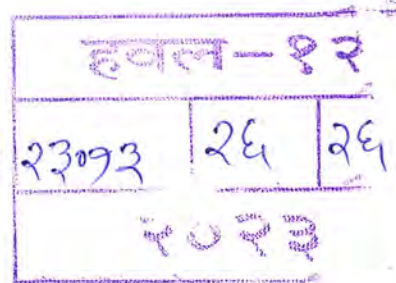 हवल-१२
२३०१३ २६ २६
२०२३